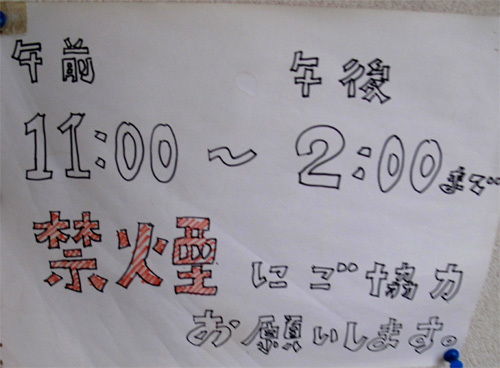 午前 午後
11:00 ～ 2:00まで
禁火垔にご協力
お願いします。